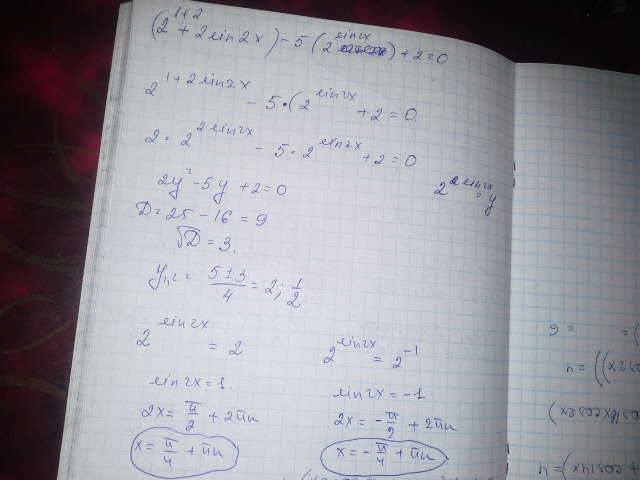 (2^{1+2} + 2sin2x) - 5 (2^{sin2x}) + 2 = 0
2^{1+2sin2x} - 5·(2^{sin2x} + 2 = 0.
2·2^{2sin2x} - 5·2^{sin2x} + 2 = 0
2y² - 5y + 2 = 0
2^{2sin2x} = y
D = 25 - 16 = 9
√D = 3.
y₁,₂ = (5±3)/4 = 2; 1/2
2^{sin2x} = 2
2^{sin2x} = 2^{-1}
sin2x = 1.
sin2x = -1
2x = π/2 + 2πn
2x = -π/2 + 2πn
x = π/4 + πn
x = -π/4 + πn
= 6
)) = 4
+ cos14x) = 4